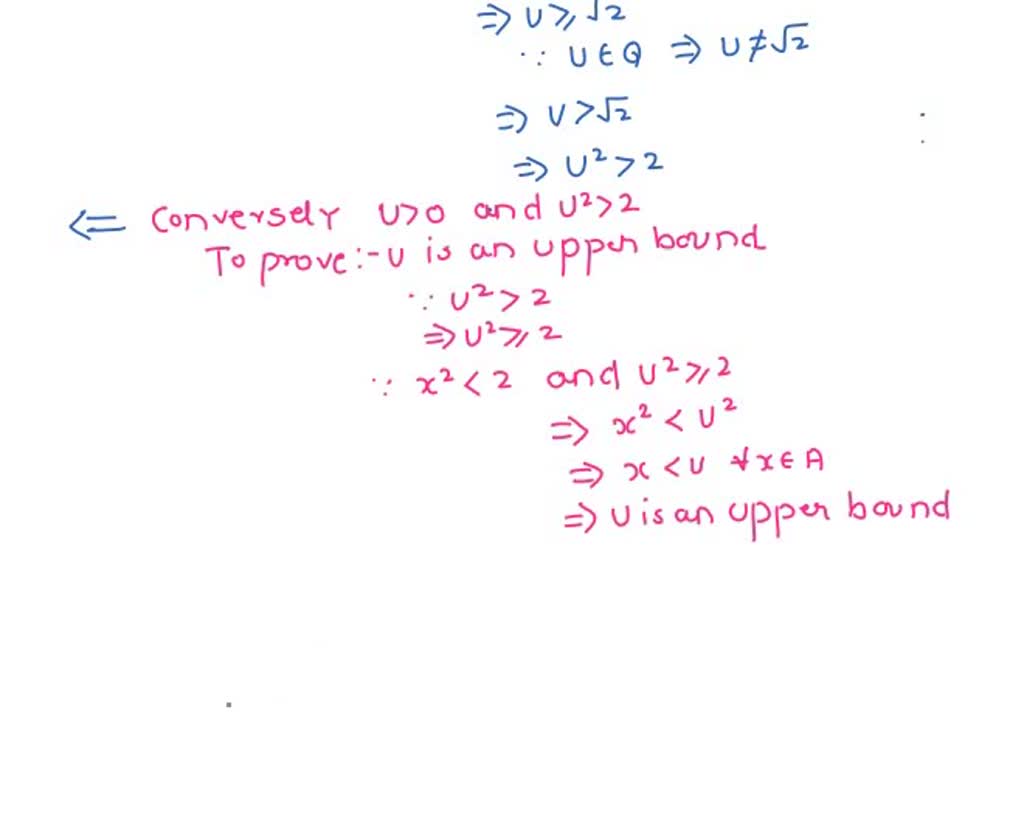 ⇒ U ⩾ √2
∵ U ∈ Q ⇒ U ≠ √2
⇒ U > √2
⇒ U² > 2
⇐ Conversely U>0 and U²>2
To prove:- U is an upper bound
∵ U² > 2
⇒ U² ⩾ 2
∵ x² < 2 and U² ⩾ 2
⇒ x² < U²
⇒ x < U ∀ x ∈ A
⇒ U is an upper bound